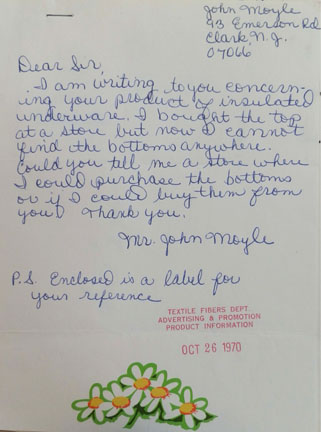 John Moyle
93 Emerson Rd
Clark N.J.
07066
Dear Sir,
I am writing to you concern-
ing your product of insulated
underware. I bought the top
at a store but now I cannot
find the bottoms anywhere.
Could you tell me a store where
I could purchase the bottoms
or if I could buy them from
you? Thank you.
Mr. John Moyle
P.S. Enclosed is a label for
your reference
TEXTILE FIBERS DEPT.
ADVERTISING & PROMOTION
PRODUCT INFORMATION
OCT 26 1970